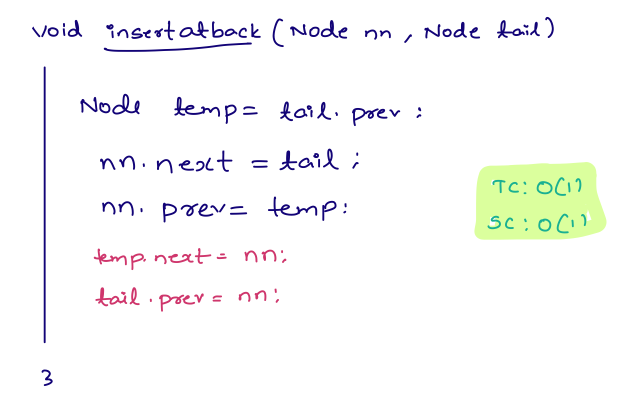 void insertatback (Node nn, Node tail)
Node temp = tail.prev;
nn.next = tail;
nn.prev = temp;
temp.next = nn;
tail.prev = nn;
TC: O(1)
SC: O(1)
}